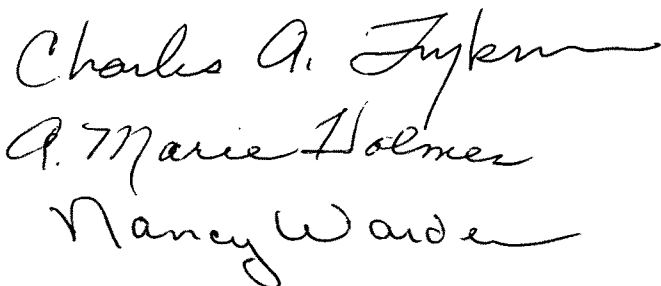 Charles A. Frykman
A. Marie Holmes
Nancy Warden